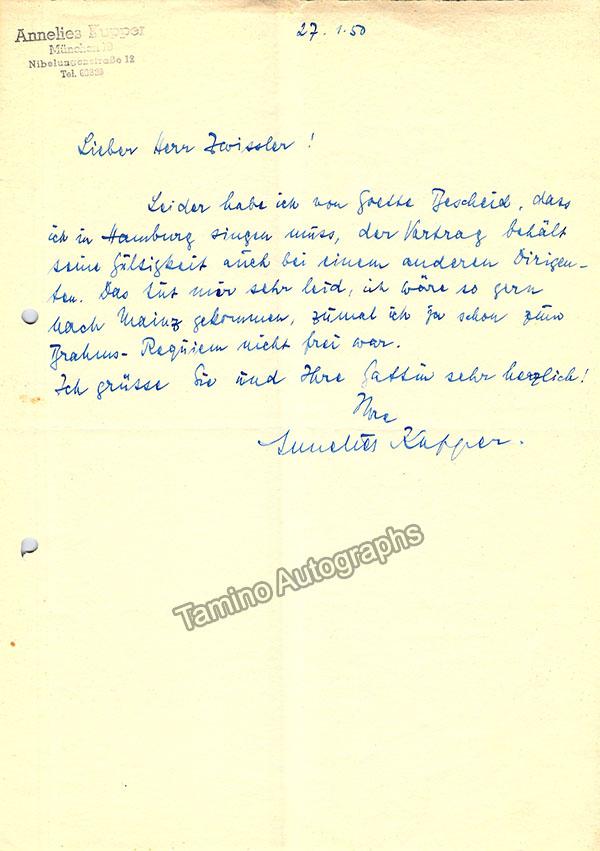 Annelies Kupper
München 19
Nibelungenstraße 12
Tel.
27.1.50
Lieber Herr Zwissler!
Leider habe ich von Goette Bescheid, dass
ich in Hamburg singen muss, der Vertrag behält
seine Gültigkeit auch bei einem anderen Dirigen-
ten. Das tut mir sehr leid, ich wäre so gern
nach Mainz gekommen, zumal ich ja schon zum
Brahms-Requiem nicht frei war.
Ich grüsse Sie und Ihre Gattin sehr herzlich!
Ihre
Annelies Kupper.
Tamino Autographs